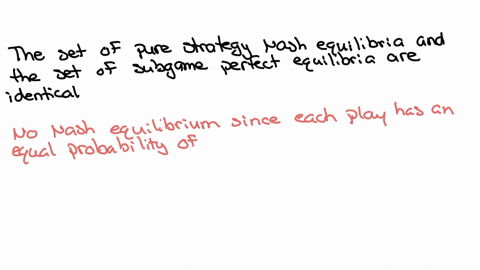 The set of pure strategy Nash equilibria and
the set of subgame perfect equilibria are
identical
No Nash equilibrium since each play has an
equal probability of